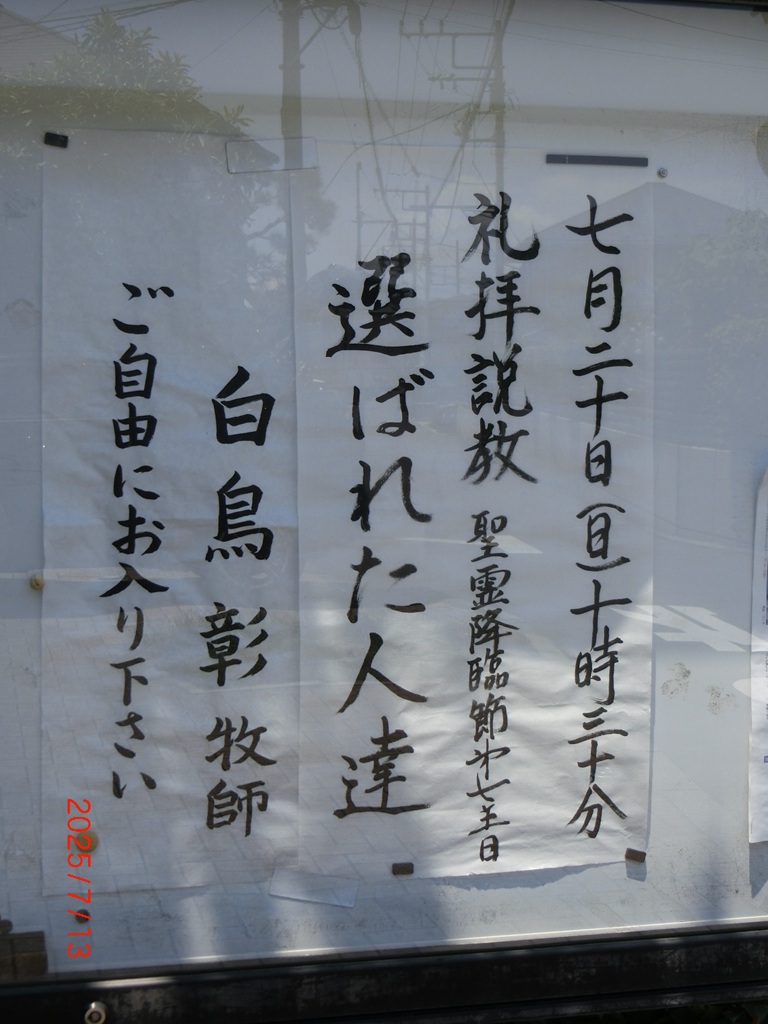 七月二十日(日)十時三十分
礼拝説教 聖霊降臨節第七主日
選ばれた人達
白鳥彰牧師
ご自由にお入り下さい
2025/7/13